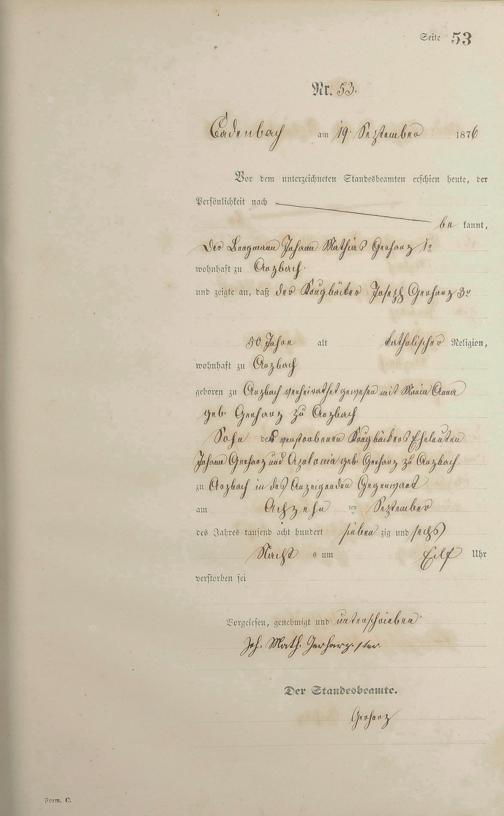 Seite 53
Nr. 53.
Cadenbach am 19. September 1876
Vor dem unterzeichneten Standesbeamten erschien heute, der
Persönlichkeit nach
be kannt,
der Bergmann Johann Mathias Gerharz 1r
wohnhaft zu Arzbach
und zeigte an, daß der Krugbäcker Joseph Gerharz 3r
50 Jahre alt katholischer Religion,
wohnhaft zu Arzbach
geboren zu Arzbach verheirathet gewesen mit Maria Anna
geb Gerharz zu Arzbach
Sohn der verstorbenen Krugbäckers Eheleuten
Johann Gerharz und Apolonia geb Gerharz zu Arzbach
zu Arzbach in des Anzeigenden Gegenwart
am Achzehn ten September
des Jahres tausend acht hundert sieben zig und sechs
Nacht s um Eilf Uhr
verstorben sei
Vorgelesen, genehmigt und unterschrieben
Joh. Math. Gerharz ster
Der Standesbeamte.
Gerharz
Form. C.